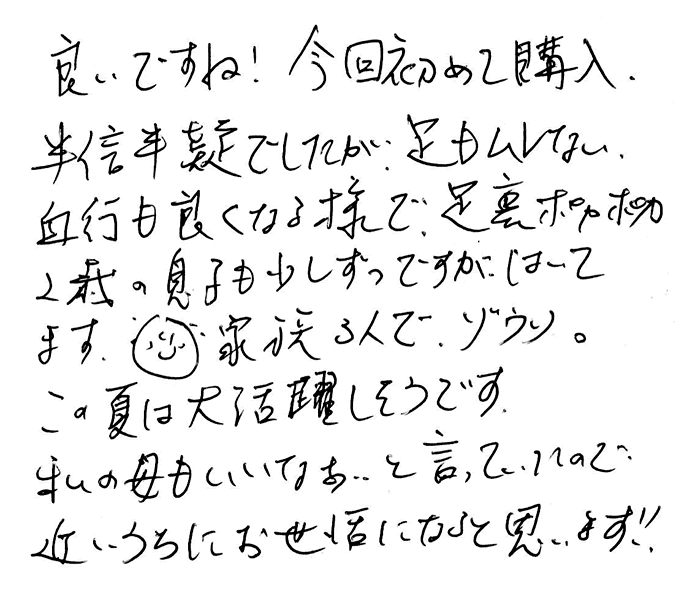 良いですね! 今回初めて購入.
半信半疑でしたが、足もムレない.
血行も良くなる様で、足裏ポカポカ
2歳の息子も少しずつですが、はいて
ます. 家族3人で、ゾウリ。
この夏は大活躍しそうです.
私の母もいいなぁ..と言っていたので
近いうちにお世話になると思います!!